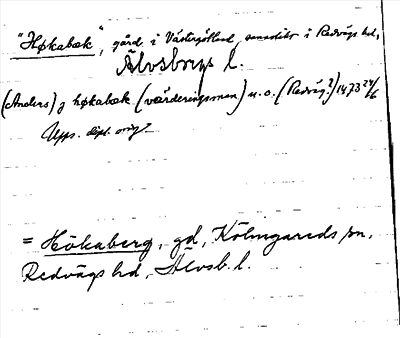 "Høkabæk", gård i Västergötland, sannolikt i Redvägs hd,
Älvsborgs l.
(Anders) j høkabæk (værderingsman) u. o. (Redväg?) 1473 24/6
Upps. dipl. orig.
= Hökaberg, gd, Kölingareds sn,
Redvägs hd, Älvsb. l.